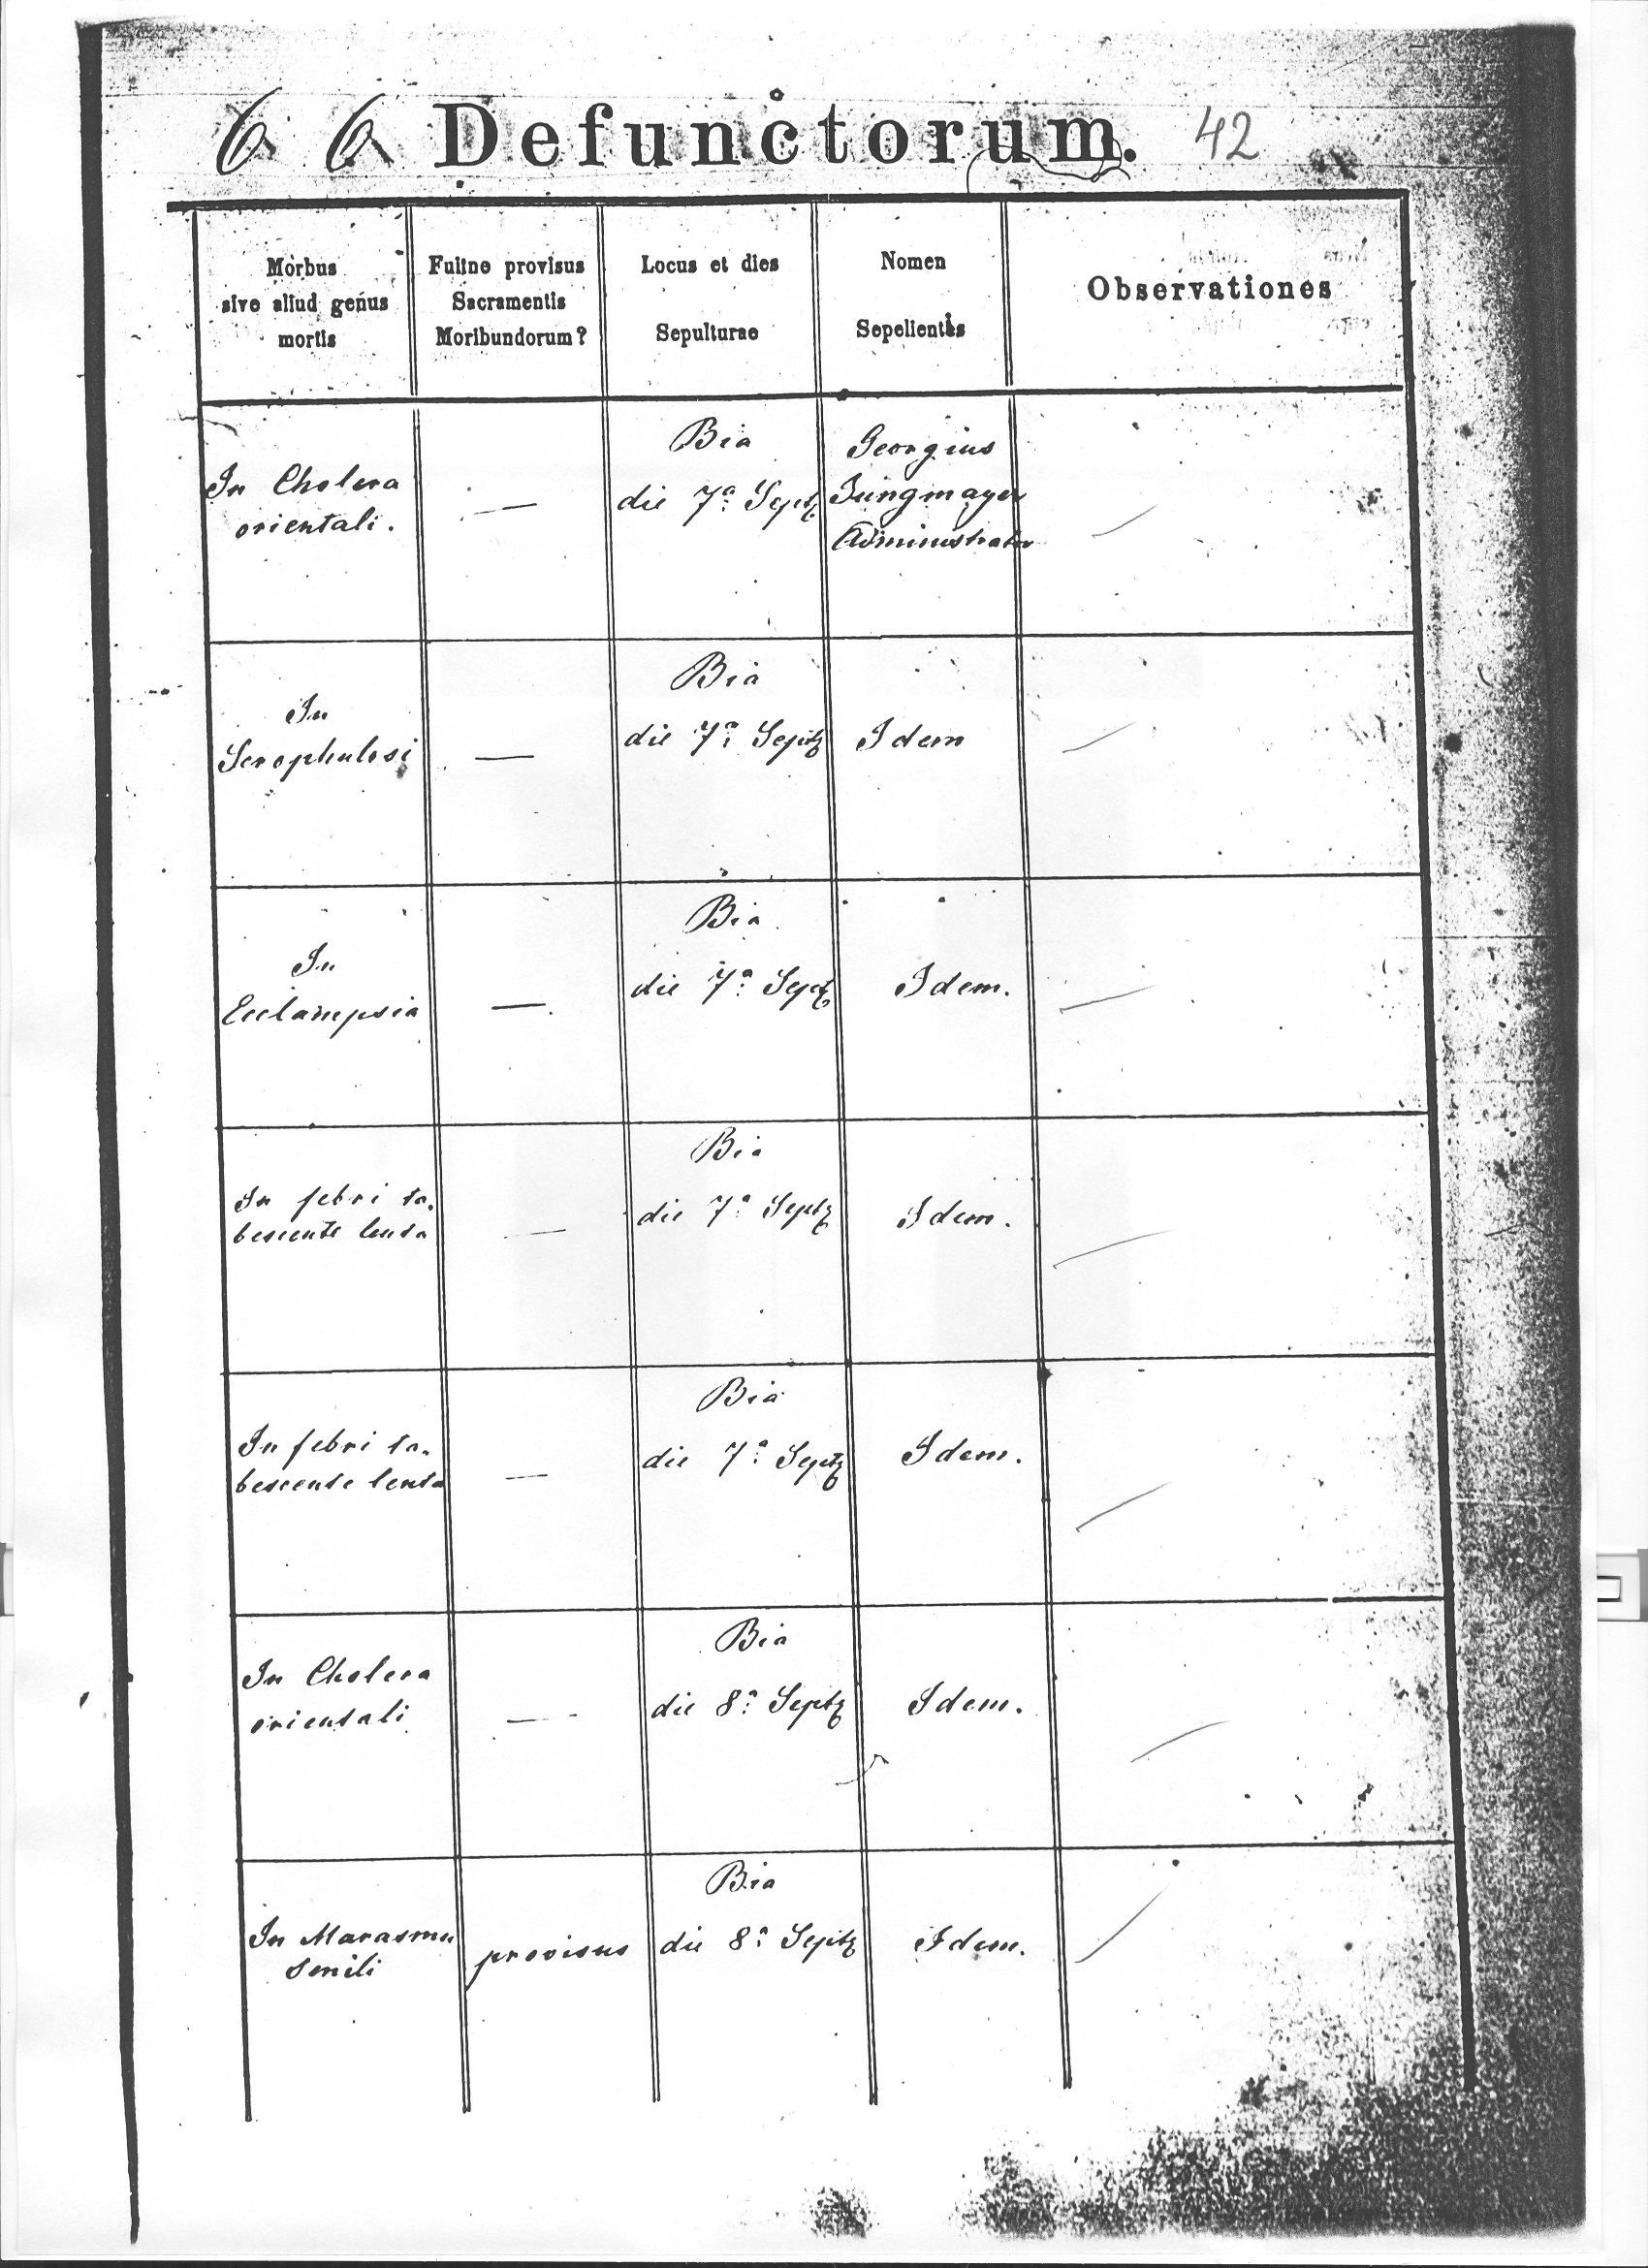 6 6 Defunctorum. 42
Morbus
sive aliud genus
mortis
Fuitne provisus
Sacramentis
Moribundorum?
Locus et dies
Sepulturae
Nomen
Sepelientis
Observationes
In Cholera
orientali.
—
Bia
die 7a Septb
Georgius
Jungmayer
Administrator
In
Scrophulosi
—
Bia
die 7a Septb
Idem
In
Ecclampsia
—
Bia
die 7a Septb
Idem.
In febri ta-
bescente lenta
—
Bia
die 7a Septb
Idem.
In febri ta-
bescente lenta
—
Bia
die 7a Septb
Idem.
In Cholera
orientali
—
Bia
die 8a Septb
Idem.
In Marasmu
senili
provisus
Bia
die 8a Septb
Idem.